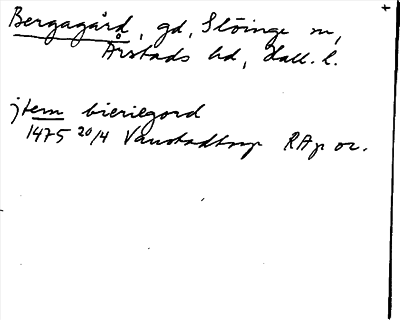 Bergagård, gd, Slöinge sn,
Årstads hd, Hall. l.
jtem bieriegord
1475 20/4 Vanstadtorp RAp or.